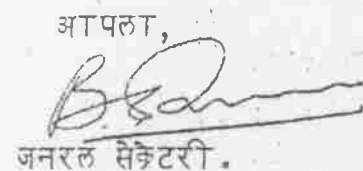 आपला,
जनरल सेक्रेटरी.